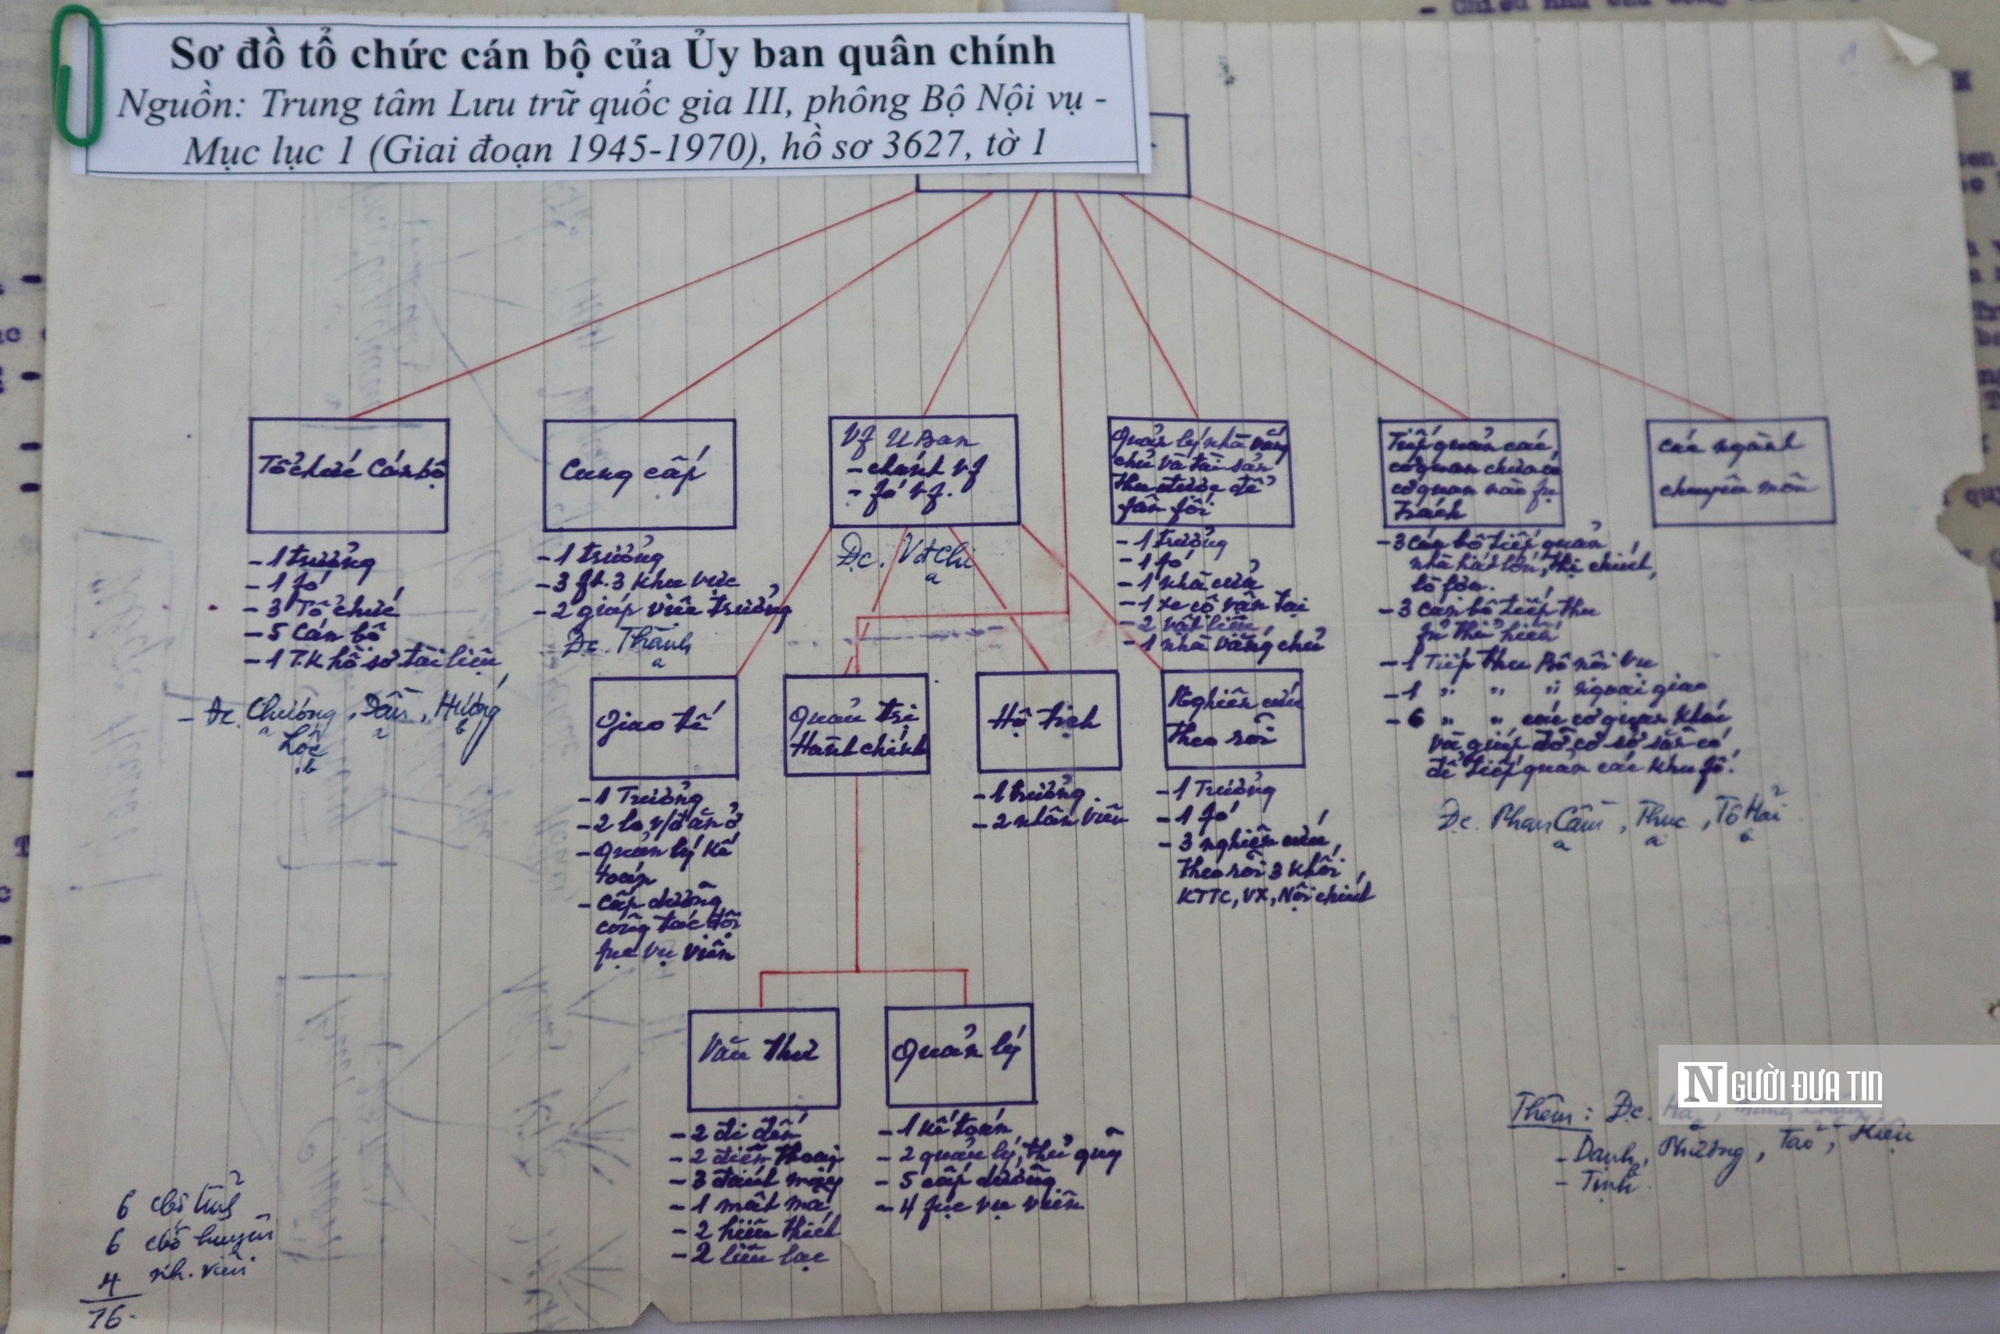 Sơ đồ tổ chức cán bộ của Ủy ban quân chính
Nguồn: Trung tâm Lưu trữ quốc gia III, phông Bộ Nội vụ -
Mục lục 1 (Giai đoạn 1945-1970), hồ sơ 3627, tờ 1
Tổ chức Cán bộ
- 1 trưởng
- 1 fó
- 3 Tổ chức
- 5 Cán bộ
- 1 T.K hồ sơ tài liệu
- Đc. Chương, Dần, Hướng
Lộc
Cung cấp
- 1 trưởng
- 3 ft. 3 khu vực
- 2 giúp việc trưởng
Đc. Thành
Vf U Ban
- chánh vf
- fó vf.
Đc. Vđ Chi
Quản lý nhà vắng
chủ và tài sản
thu được để
fân fối
- 1 trưởng
- 1 fó
- 1 nhà cửa
- 1 xe cộ vận tại
- 2 vật liệu
- 1 nhà vắng chủ
Tiếp quản các
cơ quan chưa có
cơ quan nào fụ
trách
- 3 cán bộ tiếp quản
nhà hát lớn, thị chính,
- 3 cán bộ tiếp thu
fủ thủ hiến
- 1 Tiếp thu Bộ nội vụ
- 1 " " " ngoại giao
- 6 " " các cơ quan khác
và giúp đỡ cơ sở sẵn có
để tiếp quản các khu fố.
Đc. Phan Cầm, Thục, Tô Hải
các ngành
chuyên môn
Giao tế
- 1 Trưởng
- 2 lo v/đ ăn ở
- Quản lý kế
toán
- Cấp dưỡng
công tác đội
fục vụ viên
Quản trị
Hành chính
Hộ tịch
- 1 trưởng
- 2 nhân viên
Nghiên cứu
theo rõi
- 1 Trưởng
- 1 fó
- 3 nghiên cứu,
theo rõi 3 khối,
KTTC, VX, Nội chính
Văn thư
- 2 đi đến
- 2 điện thoại
- 3 đánh máy
- 1 mật mã
- 2 liên lạc
Quản lý
- 1 kế toán
- 2 quản lý, thủ quỹ
- 5 cấp dưỡng
- 4 fục vụ viên
6 cbộ tỉnh
6 cbộ huyện
4 nh. viên
16.
NGƯỜI ĐƯA TIN
Thêm: Đc.
- Danh, Phương, Tao, Hiệu
- Tịnh